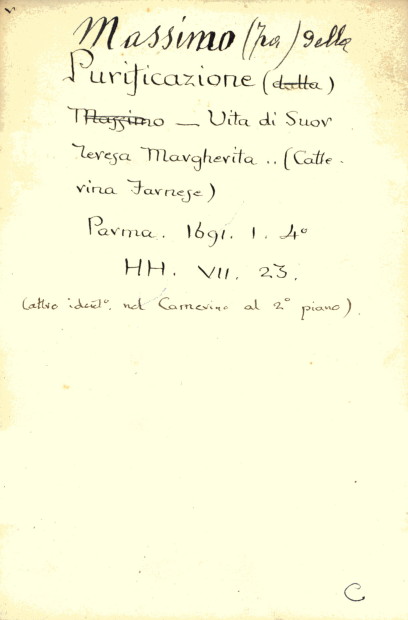 Massimo (Fra) della
Purificazione (della)
Massimo — Vita di Suor
Teresa Margherita .. (Catte-
rina Farnese)
Parma. 1691. 1. 4°
HH. VII. 23.
(altro ident°. nel Camerino al 2° piano).
C